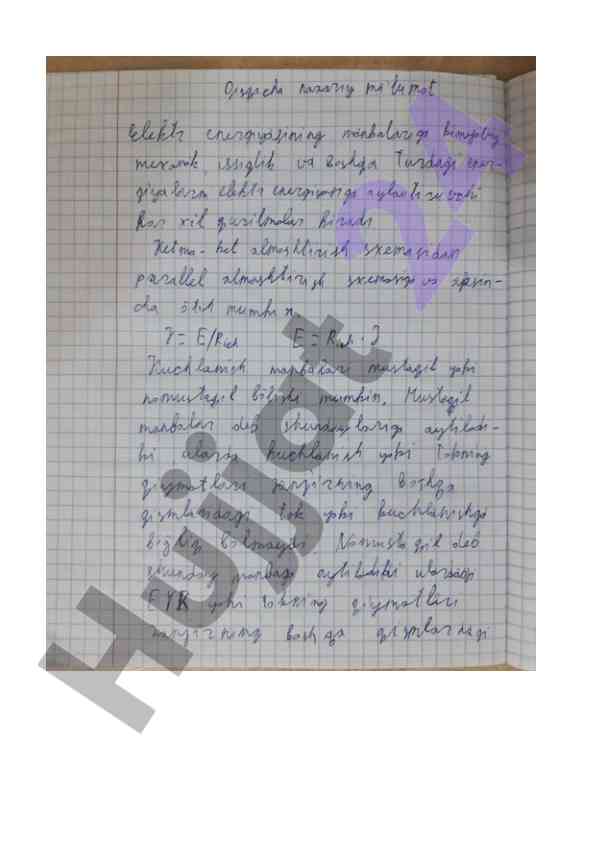 Qisqcha nazariy ma'lumot
Elektr energiyasining manbalariga kimyoviy
mexanik, issiqlik va boshqa turdagi ener-
giyalarni elektr energiyasiga aylantiruvchi
har xil qurilmalar kiradi
Ketma-ket almashtirish sxemasidan
parallel almashtirish sxemasiga va aksin-
cha o'tish mumkin
J = E/Rich E = Rich · J
Kuchlanish manbalari mustaqil yoki
nomustaqil bo'lishi mumkin. Mustaqil
manbalar deb shundaylariga aytiladi-
ki ularda kuchlanish yoki tokning
qiymatlari zanjirning boshqa
qismlaridagi tok yoki kuchlanishga
bog'liq bo'lmaydi Nomustaqil deb
shunday manbaga aytiladiki ulardagi
EYK yoki tokning qiymatlari
zanjirning boshqa qismlaridagi
Hujjat 24